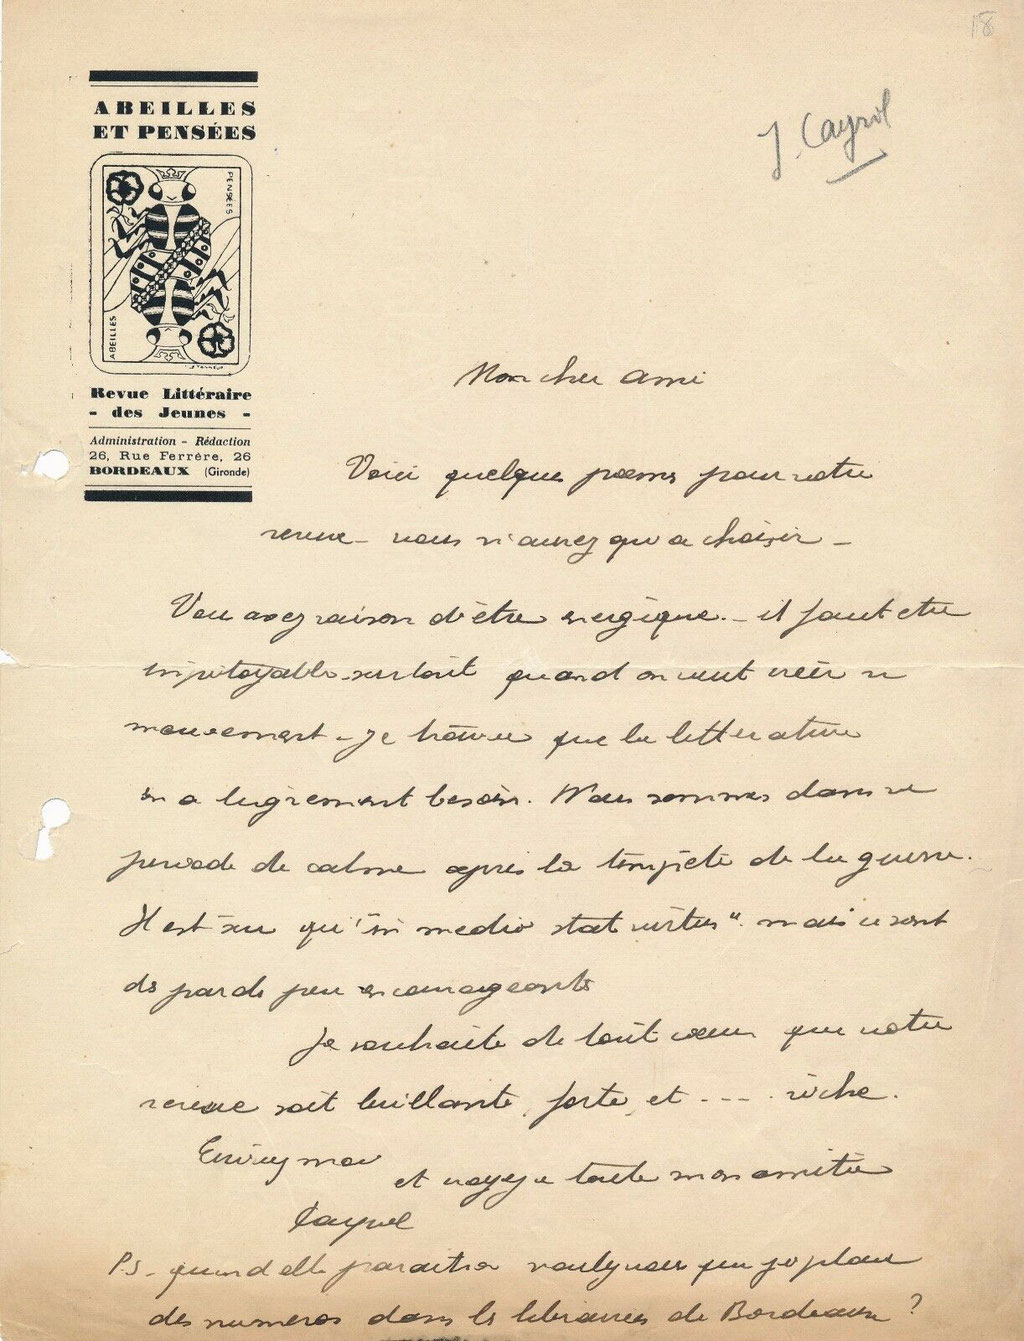 18
J. Cayrol
ABEILLES
ET PENSÉES
PENSÉES
ABEILLES
Revue Littéraire
- des Jeunes -
Administration - Rédaction
26, Rue Ferrère, 26
BORDEAUX (Gironde)
Mon cher ami
Voici quelques poèmes pour votre
revue - vous n'aurez qu'a choisir -
Vous avez raison d'être energique. - il faut etre
impitoyable surtout quand on veut créer un
mouvement - Je trouve que la litterature
en a bigrement besoin. Nous sommes dans une
periode de calme après la tempête de la guerre.
Il est sûr qu' "in medio stat virtus". mais ce sont
des paroles peu encourageantes
Je souhaite de tout cœur que votre
revue soit brillante, forte, et - - - . riche.
Ecrivez moi
et voyez toute mon amitié
Cayrol
PS - quand elle paraitra voulez vous que je place
des numeros dans les librairies de Bordeaux ?